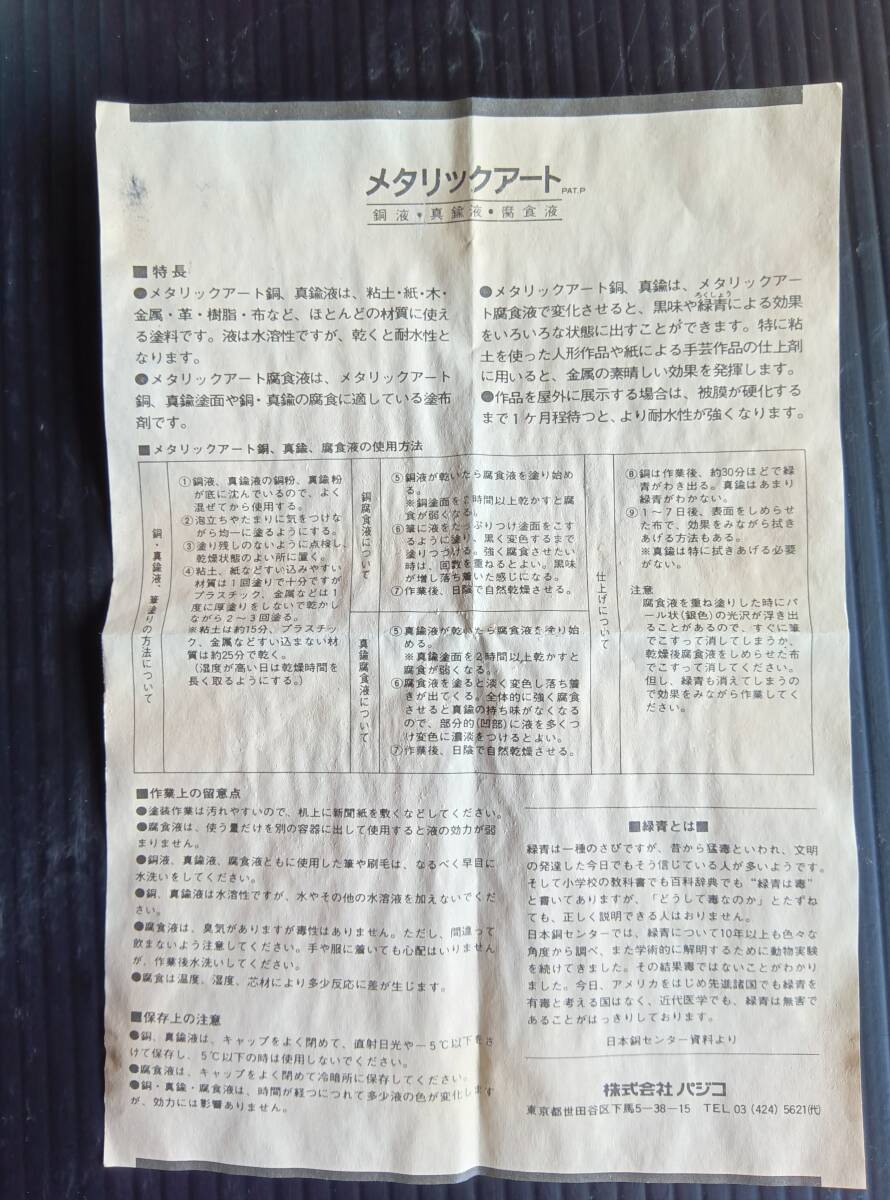 メタリックアート PAT.P
銅液・真鍮液・腐食液
■特長
●メタリックアート銅、真鍮液は、粘土・紙・木・
金属・革・樹脂・布など、ほとんどの材質に使え
る塗料です。液は水溶性ですが、乾くと耐水性と
なります。
●メタリックアート腐食液は、メタリックアート
銅、真鍮塗面や銅・真鍮の腐食に適している塗布
剤です。
●メタリックアート銅、真鍮は、メタリックアー
ト腐食液で変化させると、黒味や緑青による効果
ろくしょう
をいろいろな状態に出すことができます。特に粘
土を使った人形作品や紙による手芸作品の仕上剤
に用いると、金属の素晴しい効果を発揮します。
●作品を屋外に展示する場合は、被膜が硬化する
まで1ケ月程待つと、より耐水性が強くなります。
■メタリックアート銅、真鍮、腐食液の使用方法
銅・真鍮液、筆塗りの方法について
①銅液、真鍮液の銅粉、真鍮粉
が底に沈んでいるので、よく
混ぜてから使用する。
②泡立ちやたまりに気をつけな
がら均一に塗るようにする。
③塗り残しのないように点検し、
乾燥状態のよい所に置く。
④粘土、紙などすい込みやすい
材質は1回塗りで十分ですが
プラスチック、金属などは1
度に厚塗りをしないで乾かし
ながら2〜3回塗る。
※粘土は約15分、プラスチッ
ク、金属などすい込まない材
質は約25分で乾く。
(湿度が高い日は乾燥時間を
長く取るようにする。)
銅腐食液について
⑤銅液が乾いたら腐食液を塗り始め
る。
※銅塗面を2時間以上乾かすと腐
食が弱くなる。
⑥筆に液をたっぷりつけ塗面をこす
るように塗り、黒く変色するまで
塗りつづける。強く腐食させたい
時は、回数を重ねるとよい。黒味
が増し落ち着いた感じになる。
⑦作業後、日陰で自然乾燥させる。
真鍮腐食液について
⑤真鍮液が乾いたら腐食液を塗り始
める。
※真鍮塗面を2時間以上乾かすと
腐食が弱くなる。
⑥腐食液を塗ると淡く変色し落ち着
きが出てくる。全体的に強く腐食
させると真鍮の持ち味がなくなる
ので、部分的(凹部)に液を多くつ
け変色に濃淡をつけるとよい。
⑦作業後、日陰で自然乾燥させる。
仕上げについて
⑧銅は作業後、約30分ほどで緑
青がわき出る。真鍮はあまり
緑青がわかない。
⑨1〜7日後、表面をしめらせ
た布で、効果をみながら拭き
あげる方法もある。
※真鍮は特に拭きあげる必要
がない。
注意
腐食液を重ね塗りした時にパ
ール状(銀色)の光沢が浮き出
ることがあるので、すぐに筆
でこすって消してしまうか、
乾燥後腐食液をしめらせた布
でこすって消してください。
但し、緑青も消えてしまうの
で効果をみながら作業してく
ださい。
■作業上の留意点
●塗装作業は汚れやすいので、机上に新聞紙を敷くなどしてください。
●腐食液は、使う量だけを別の容器に出して使用すると液の効力が弱
まりません。
●銅液、真鍮液、腐食液ともに使用した筆や刷毛は、なるべく早目に
水洗いをしてください。
●銅、真鍮液は水溶性ですが、水やその他の水溶液を加えないでくだ
さい。
●腐食液は、臭気がありますが毒性はありません。ただし、間違って
飲まないよう注意してください。手や服に着いても心配はいりません
が、作業後水洗いしてください。
●腐食は温度、湿度、芯材により多少反応に差が生じます。
■保存上の注意
●銅、真鍮液は、キャップをよく閉めて、直射日光や−5℃以下をさ
けて保存し、5℃以下の時は使用しないでください。
●腐食液は、キャップをよく閉めて冷暗所に保存してください。
●銅・真鍮・腐食液は、時間が経つにつれて多少液の色が変化します
が、効力には影響ありません。
■緑青とは■
緑青は一種のさびですが、昔から猛毒といわれ、文明
の発達した今日でもそう信じている人が多いようです。
そして小学校の教科書でも百科辞典でも“緑青は毒”
と書いてありますが、「どうして毒なのか」とたずね
ても、正しく説明できる人はおりません。
日本銅センターでは、緑青について10年以上も色々な
角度から調べ、また学術的に解明するために動物実験
を続けてきました。その結果毒ではないことがわかり
ました。今日、アメリカをはじめ先進諸国でも緑青を
有毒と考える国はなく、近代医学でも、緑青は無害で
あることがはっきりしております。
日本銅センター資料より
株式会社 パジコ
東京都世田谷区下馬5−38−15 TEL 03 (424) 5621(代)